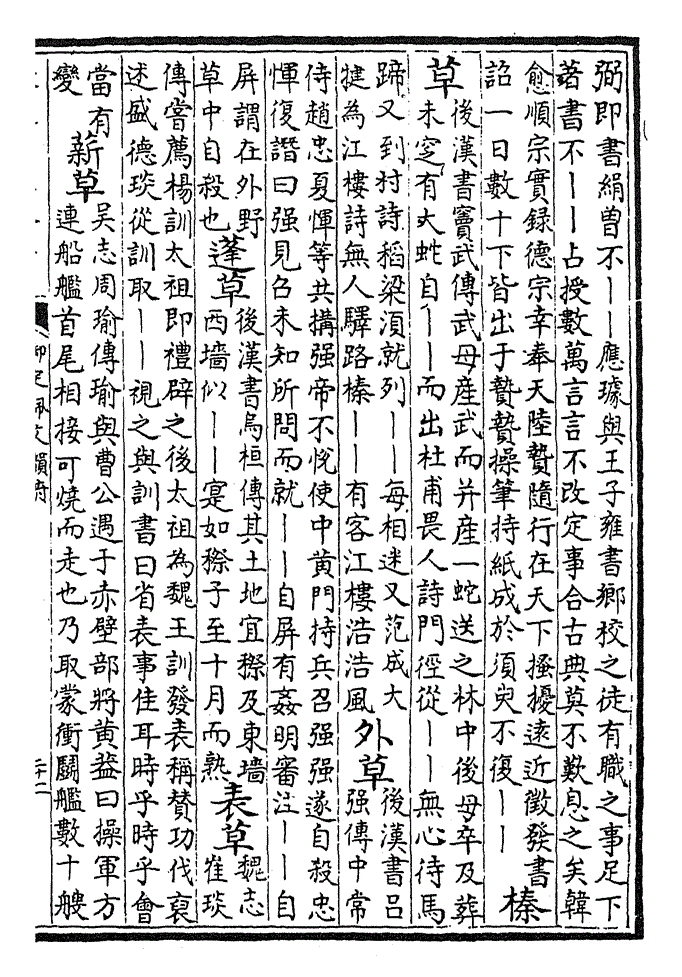 弼即書絹曾不丨丨應璩與王子雍書鄉校之徒有職之事足下
著書不丨丨占授數萬言言不改定事合古典莫不歎息之矣韓
愈順宗實録德宗幸奉天陸贄隨行在天下搔擾逺近徵發書
詔一日數十下皆出于贄贄操筆持紙成於須臾不復丨丨
榛
草
後漢書竇武傳武母産武而并産一蛇送之林中後母卒及葬
未窆有大蛇自丨丨而出杜甫畏人詩門徑從丨丨無心待馬
蹄又到村詩稻粱須就列丨丨每相迷又范成大
揵為江樓詩無人驛路榛丨丨有客江樓浩浩風
外草
後漢書吕
强傳中常
侍趙忠夏惲等共搆强帝不悦使中黄門持兵召强强遂自殺忠
惲復譖曰强見召未知所問而就丨丨自屏有姦明審注丨丨自
屏謂在外野
草中自殺也
蓬草
後漢書烏桓傳其土地宜穄及東墻
西墻似丨丨寔如穄子至十月而熟
表草
魏志
崔琰
傳嘗薦楊訓太祖即禮辟之後太祖為魏王訓發表稱賛功伐襃
述盛德琰從訓取丨丨視之與訓書曰省表事佳耳時乎時乎會
當有
變
薪草
吳志周瑜傳瑜與曹公遇于赤壁部將黄葢曰操軍方
連船艦首尾相接可燒而走也乃取蒙衝鬭艦數十艘
御定佩文韻府
二十二